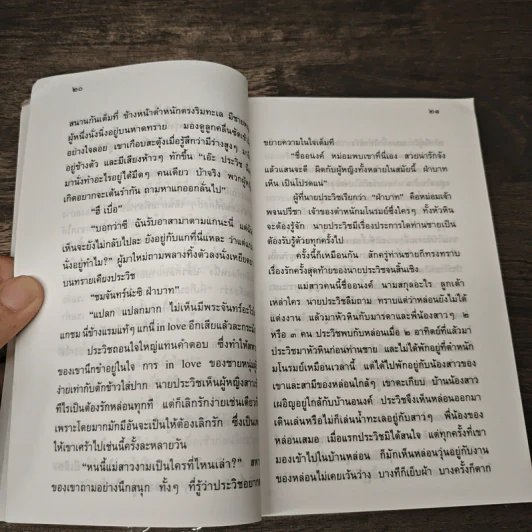 ๒๐
สนานกันเต็มที่ ข้างหน้าตำหนักตรงริมทะเล มีชาย
ผู้หนึ่งนั่งนิ่งอยู่บนหาดทราย มองดูลูกคลื่นซัดเข้า
อย่างใจลอย เขาเกือบสะดุ้งเมื่อรู้สึกว่ามีร่างสูงๆ
อยู่ข้างตัว และมีเสียงห้าวๆ ทักขึ้น "เฮ้ย ประวิช
มานั่งทำอะไรอยู่ได้มืดๆ คนเดียว บ้าจริง พวกผู้
เกิดอยากจะเต้นรำกัน ถามหาแกออกลั่นไป"
"ฮื่ เบื่อ"
"บอกว่าซี ฉันรับอาสามาตามแกนะนี่ แต่
เห็นจะยังไม่กลับไปละ ยังอยู่กับแกที่นี่แหละ ว่าแต่
นั่งอยู่ทำไม?" ผู้มาใหม่ถามพลางทิ้งตัวลงนั่งเหยียด
บนทรายเคียงประวิช
"ชมจันทร์น่ะซิ ฝ่าบาท"
"แปลก แปลกมาก ไม่เห็นมีพระจันทร์อะไร
แกชม นี่ข้างแรมแท้ๆ แกนี่ in love อีกเสียแล้วละกระมัง
ประวิชถอนใจใหญ่แทนคำตอบ ซึ่งทำให้
ของเขานึกขำอยู่ในใจ การ in love ของชายหนุ่ม
ง่ายเท่ากับตักข้าวใส่ปาก นายประวิชเห็นผู้หญิงสาว
ทีไรเป็นต้องรักหล่อนทุกที แต่ก็เลิกรักง่ายเช่นเดียว
เพราะโดยมากมักมีอันจะเป็นให้ต้องเลิกรัก ซึ่งเป็น
ให้เขาเศร้าไปเช่นนี้ครั้งละหลายวัน
"หนนี้แม่สาวงามเป็นใครที่ไหนเล่า?"
ของเขาถามอย่างนึกสนุก ทั้งๆ ที่รู้ว่าประวิชอยาก
๒๑
ขยายความในใจเต็มที่
"ชื่ออนงค์ หม่อมพบเขาที่นี่เอง สวยน่ารักจัง
แล้วแสนจะดี ผิดกับผู้หญิงทั้งหลายในสมัยนี้ ฝ่าบาท
เห็น เป็นโปรดแน่"
ผู้ที่นายประวิชเรียกว่า "ฝ่าบาท" คือหม่อมเจ้า
พจนปรีชา เจ้าของตำหนักมโนรมย์ซึ่งใครๆ ทั้งหัวหิน
จะต้องรู้จัก นายประวิชมีเรื่องประการใดท่านชายเป็น
ต้องรับรู้ด้วยทุกครั้งไป
ครั้งนี้ก็เหมือนกัน สักครู่ท่านชายก็ทรงทราบ
เรื่องรักครั้งสุดท้ายของนายประวิชจนสิ้นเชิง
แม่สาวคนนี้ชื่ออนงค์ นามสกุลอะไร ลูกเต้า
เหล่าใคร นายประวิชลืมถาม ทราบแต่ว่าหล่อนยังไม่ได้
แต่งงาน แล้วมาหัวหินกับมารดาและพี่น้องสาวๆ ๒
หรือ ๓ คน ประวิชพบกับหล่อนเมื่อ ๒ อาทิตย์ที่แล้วมา
ประวิชมาหัวหินก่อนท่านชาย และไม่ได้พักอยู่ที่ตำหนัก
มโนรมย์เหมือนเวลานี้ แต่ได้ไปพักอยู่กับน้องสาวของ
เขาและสามีของหล่อนใกล้ๆ เขาตะเกียบ บ้านน้องสาว
เผอิญอยู่ใกล้กับบ้านอนงค์ ประวิชจึงเห็นหล่อนออกมา
เดินเล่นหรือไม่ก็เล่นน้ำทะเลอยู่กับสาวๆ พี่น้องของ
หล่อนเสมอ เมื่อแรกประวิชมิได้สนใจ แต่ทุกครั้งที่เขา
มองเข้าไปในบ้านหล่อน ก็มักเห็นหล่อนวุ่นอยู่กับงาน
ของหล่อนไม่เคยเว้นว่าง บางทีก็เย็บผ้า บางครั้งก็ตาก